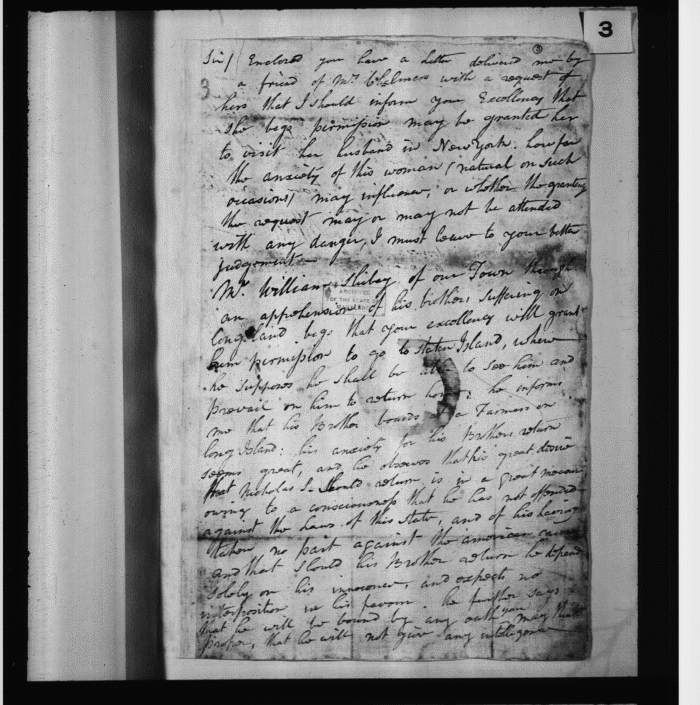 3
Sir/ Enclosed you have a letter delivered me by
a friend of Mrs Chalmers with a request of
hers that I should inform your Excellency that
She begs permission may be granted her
to visit her husband in New York. how far
the anxiety of this woman (natural on such
occasions) may influence, or whether the granting
the request may or may not be attended
with any danger, I must leave to your better
judgement
Mr. William of our Town through
an apprehension of his brothers suffering on
long Island begs that your excellency will grant
him permission to go to Staten Island, where
he supposes he shall be able to see him and
prevail on him to return home; he informs
me that his Brother boards a Farmers on
long Island: his anxiety for his Brothers return
seems great, and he observes that his great desire
that Nicholas S. Should return is in a great measure
owing to a consciousness that he has not offended
against the laws of this State, and of his having
taken no part against the american
and that should his Brother return he depends
Solely on his innocence, and expects no
interposition in his favour. he further says
that he will be bound by any oath you may think
proper, that he will not give any intelligence
ARCHIVES
OF THE STATE OF